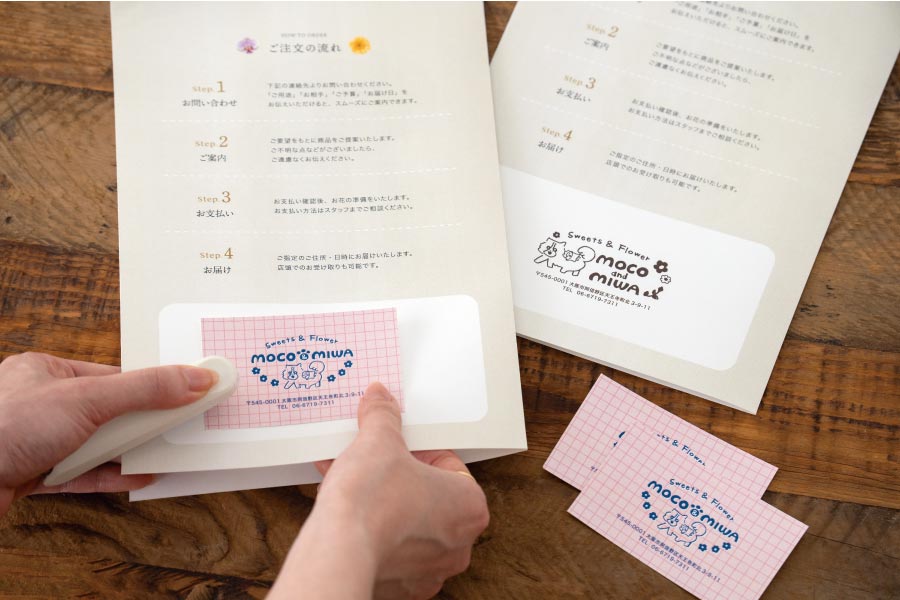 HOW TO ORDER
ご注文の流れ
Step.1
お問い合わせ
下記の連絡先よりお問い合わせください。
「ご用途」「お相手」「ご予算」「お届け日」を
お伝えいただけると、スムーズにご案内できます。
Step.2
ご案内
ご要望をもとに商品をご提案いたします。
ご不明な点などがございましたら、
ご遠慮なくお伝えください。
Step.3
お支払い
お支払い確認後、お花の準備をいたします。
お支払い方法はスタッフまでご相談ください。
Step.4
お届け
ご指定のご住所・日時にお届けいたします。
店頭でのお受け取りも可能です。
Sweets & Flower
moco & miwa
〒545-0001 大阪市阿倍野区天王寺町北 3-9-11
TEL 06-6719-7311
下記の連絡先よりお問い合わせください。
「ご用途」「お相手」「ご予算」「お届け日」を
お伝えいただけると、スムーズにご案内できます。
Step.2
ご案内
ご要望をもとに商品をご提案いたします。
ご不明な点などがございましたら、
ご遠慮なくお伝えください。
Step.3
お支払い
お支払い確認後、お花の準備をいたします。
お支払い方法はスタッフまでご相談ください。
Step.4
お届け
ご指定のご住所・日時にお届けいたします。
店頭でのお受け取りも可能です。
Sweets & Flower
moco
and
miwa
〒545-0001 大阪市阿倍野区天王寺町北 3-9-11
TEL 06-6719-7311
Sweets & Flower
Sweets & Flower
moco & miwa
〒545-0001 大阪市阿倍野区天王寺町北 3-9-11
TEL 06-6719-7311